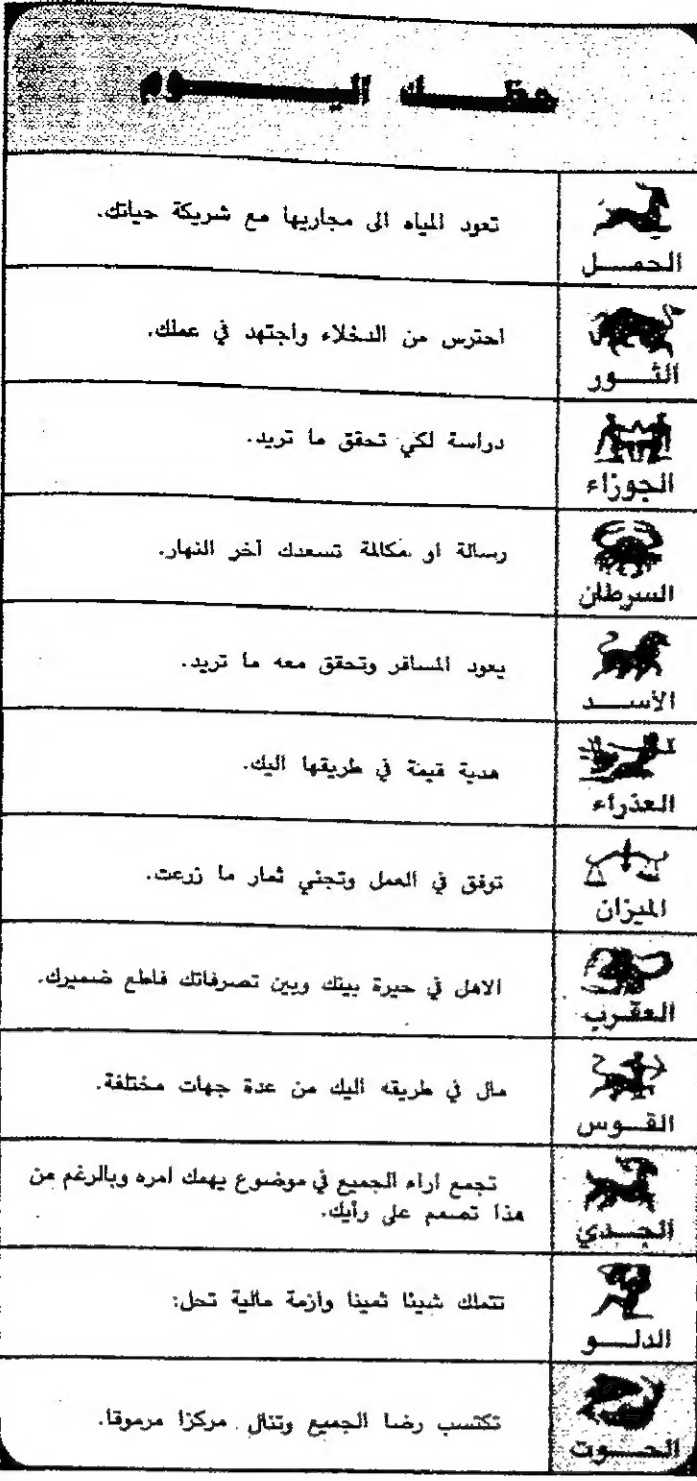 حظك اليوم
تعود المياه الى مجاريها مع شريكة حياتك.
الحمل
احترس من الدخلاء واجتهد في عملك.
الثور
دراسة لكي تحقق ما تريد.
الجوزاء
رسالة او مكالمة تسعدك آخر النهار.
السرطان
يعود المسافر وتحقق معه ما تريد.
الأسد
هدية قيمة في طريقها اليك.
العذراء
توفق في العمل وتجني ثمار ما زرعت.
الميزان
الاهل في حيرة بينك وبين تصرفاتك فاطع ضميرك.
العقرب
مال في طريقه اليك من عدة جهات مختلفة.
القوس
تجمع اراء الجميع في موضوع يهمك امره وبالرغم من
هذا تصمم على رأيك.
الجدي
تتملك شيئا ثمينا وازمة مالية تحل:
الدلو
تكتسب رضا الجميع وتنال مركزا مرموقا.
الحوت